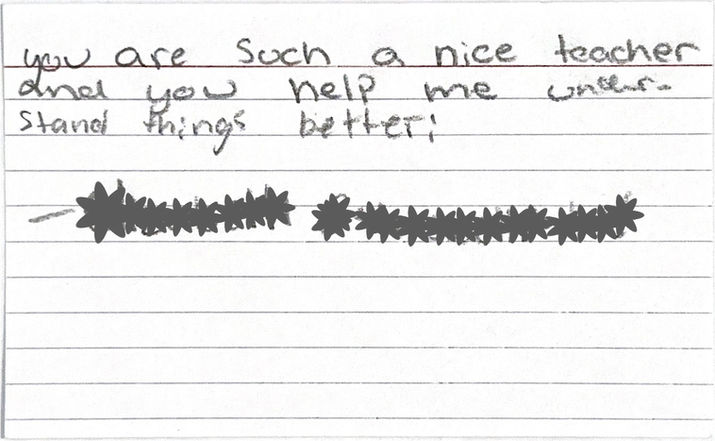 you are such a nice teacher
and you help me under-
stand things better;